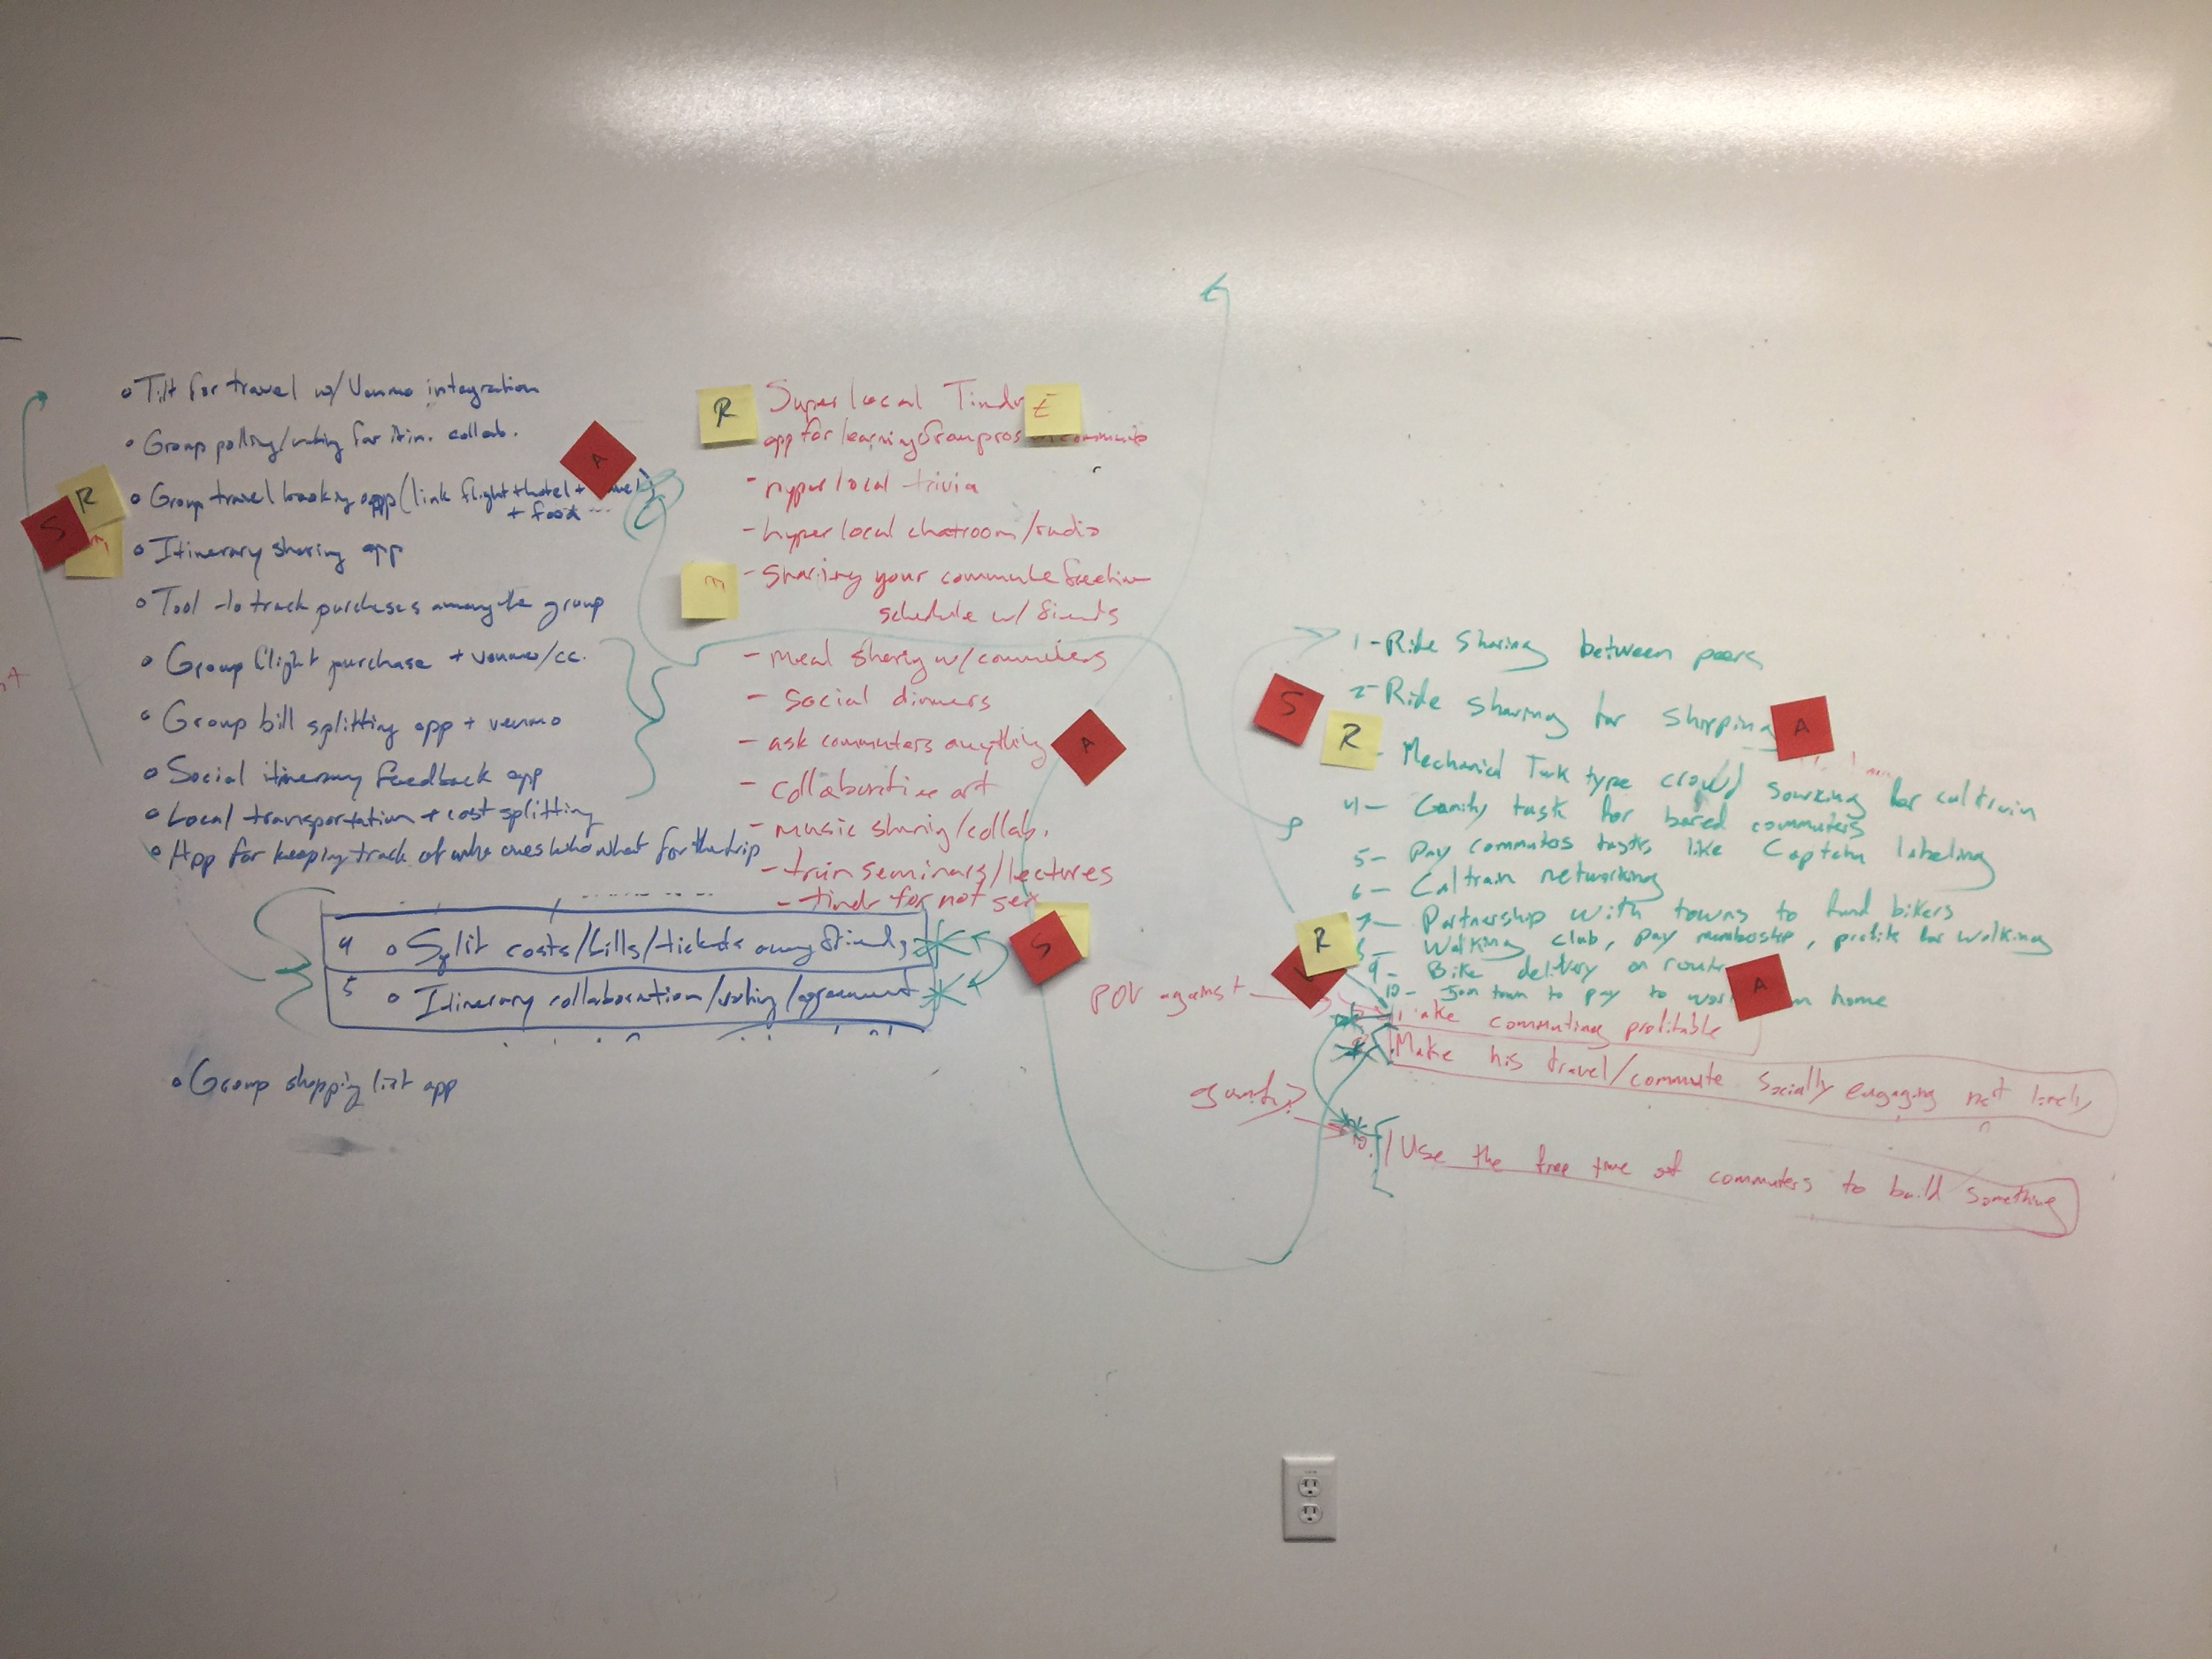 o Tilt for travel w/ Venmo integration
• Group polling/voting for itin. collab.
o Group travel booking app (link flight + hotel +
+ food ...
o Itinerary sharing app
o Tool to track purchases among the group
o Group flight purchase + venmo/cc.
o Group bill splitting app + venmo
o Social itinerary feedback app
o Local transportation + cost splitting
o App for keeping track of who owes who what for the trip
4 o Split costs/bills/tickets among friends
5 o Itinerary collaboration/voting/agreement
o Group shopping list app
S
R
A
R
E
Super local
app for learning from pros
- hyper local trivia
- hyper local chatroom/radio
- Sharing your commute
schedule w/ friends
- meal sharing w/ commuters
- social dinners
- ask commuters anything
- collaborative art
- music sharing/collab.
- train seminars/lectures
- tindr for not sex
A
S
1 - Ride sharing between peers
2 - Ride sharing for shipping
- Mechanical Turk type crowd sourcing for caltrain
4 - task for bored commuters
5 - Pay commutos tasks, like Captcha labeling
6 - Caltrain networking
7 - Partnership with towns to fund bikers
8 - Walking club, pay membership, profits for walking
9 - Bike delivery on route
10 - town to pay to home
S
R
A
R
A
POV against
commuting profitable
Make his travel/commute socially engaging not lonely
10. Use the free time of commuters to build something